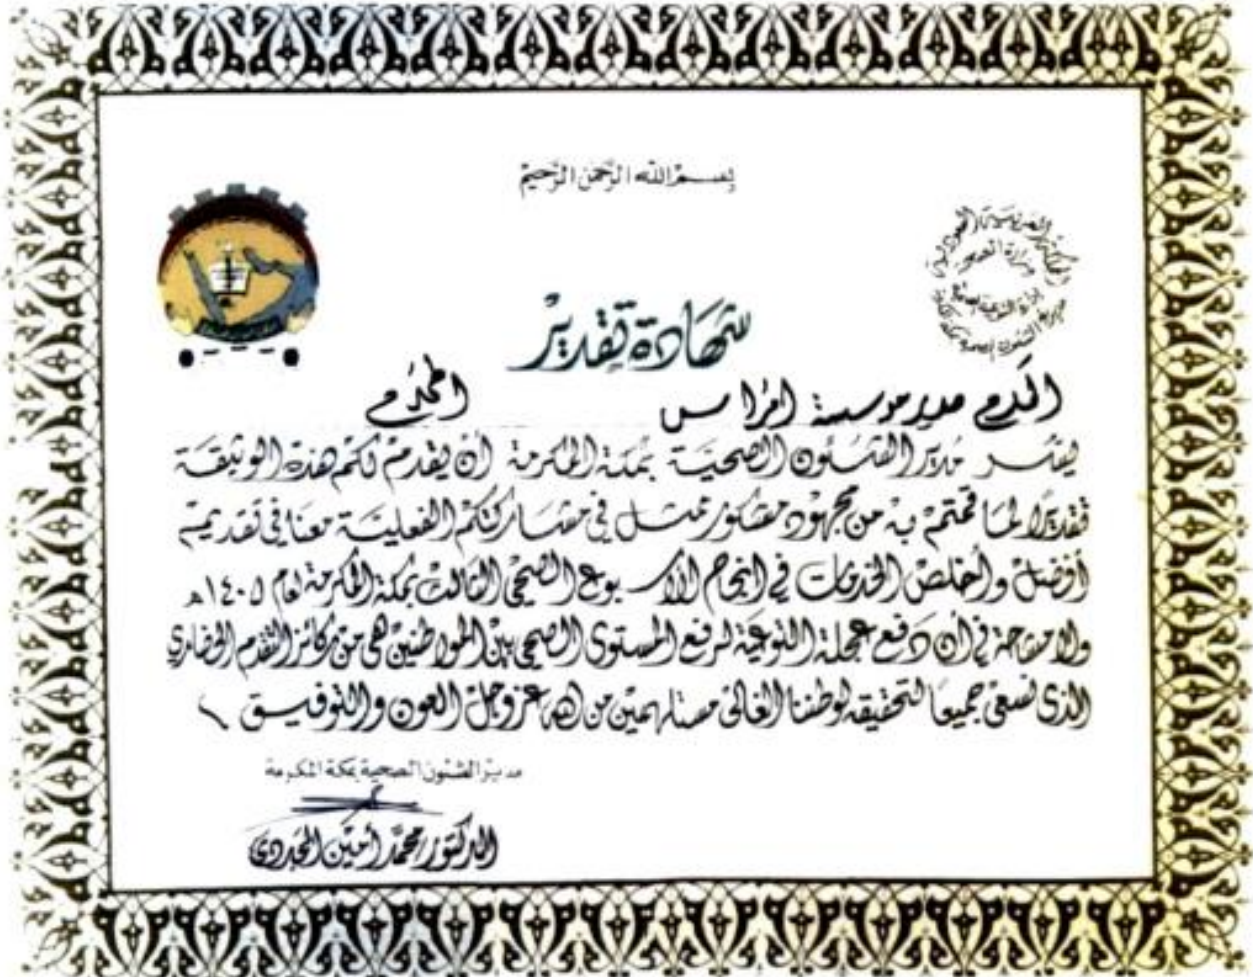 بسم الله الرحمن الرحيم
المملكة العربية السعودية
وزارة الصحة
شهادة تقدير
المكرم مدير مؤسسة امراس المحترم
يسر مدير الشئون الصحية بمكة المكرمة أن يقدم لكم هذه الوثيقة
تقديرًا لما قمتم به من مجهود مشكور تمثل في مشاركتكم الفعلية معنا في تقديم
أفضل وأخلص الخدمات في إنجاح الأسبوع الصحي الثالث بمكة المكرمة لعام ١٤٠٨هـ
ولا مشاحة في أن دفع عجلة التوعية لرفع المستوى الصحي بين المواطنين هي من ركائز التقدم الحضاري
الذي نسعى جميعًا لتحقيقه لوطننا الغالي مستلهمين من الله عز وجل العون والتوفيق
مدير الشئون الصحية بمكة المكرمة
الدكتور محمد أمين المجددي